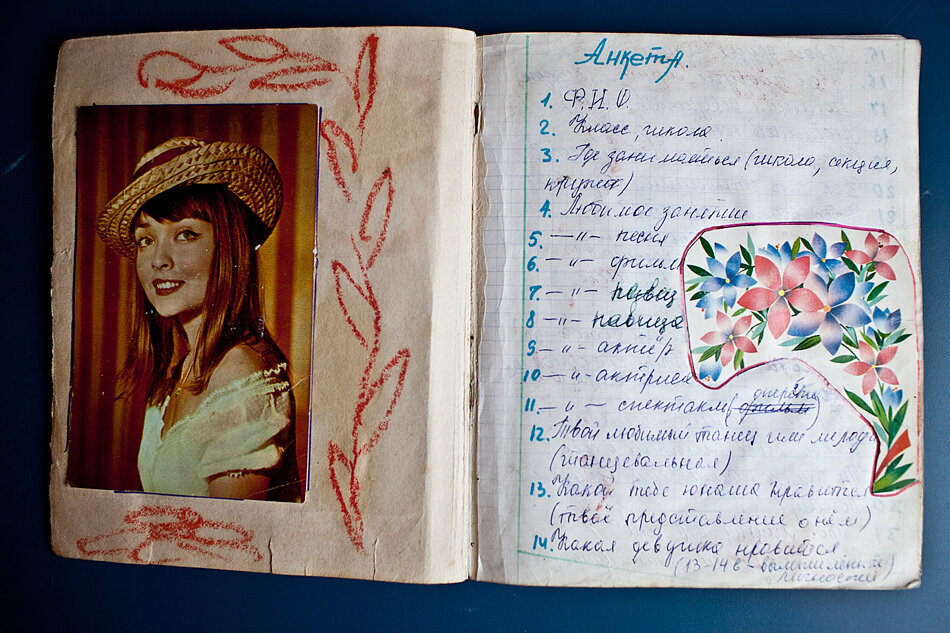 Анкета.
1. Ф.И.О.
2. Класс, школа
3. Где занимаешься (школа, секция,
кружок)
4. Любимое занятие
5. — " — песня
6. — " — фильм
7. — " — певец
8 — " — певица
9. — " — актёр
10 — " — актриса
11. — " — спектакль (фильм) оперетта
12. Твой любимый танец или мелодия
(танцевальная)
13. Какой тебе юноша нравится
(твоё представление о нём)
14. Какая девушка нравится.
(13-14 в - вымышленные
личности)